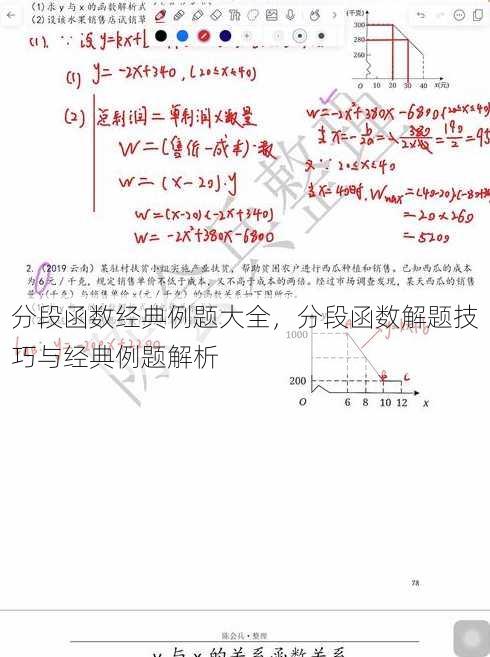 (1) 求 y 与 x 的函数解析式
(2) 设该水果销售店试销草
(千克)
300
280
260
O 10 20 30 40 x(元)
(1). ∵ 设 y=kx+
(1) y= -2x+340, (20≤x≤40)
(2) 总利润 = 单利润×数量
W=(售价-成本)·数
W= (x-20).y
W=(x-20)(-2x+340)
W= -2x²+380x-6800
W=-2x²+380x-6800 (20≤x≤40)
又∵ 20≤x≤40
当x=40时, Wmax=(40-20)(-80+
=20×260
=5200
2. (2019 云南) 某驻村扶贫小组实施产业扶贫，帮助贫困农户进行西瓜种植和销售。已知西瓜的成本
为 6 元 / 千克，规定销售单价不低于成本，又不高于成本的两倍。经过市场调查发现，某天西瓜的销售
量 y (千克) 与销售单价 x (元 / 千克) 的函数关系如下图所示。
分段函数经典例题大全，分段函数解题技
巧与经典例题解析
1000
200
O 6 8 10 12 x
B C
78
陈会兵·整理
y 与 x 的关系函数关系